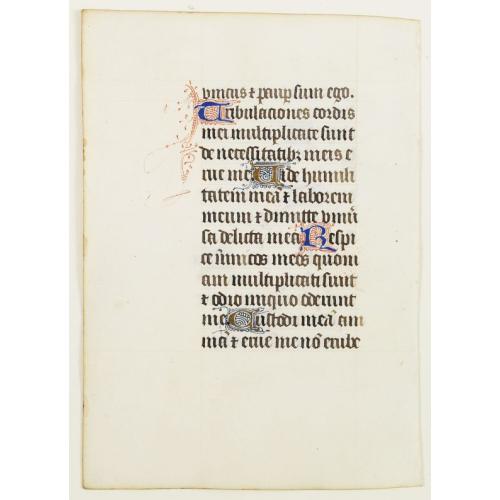 unicus ⁊ paup sum ego.
Tribulaciones cordis
mei multiplicate sunt
de necessitatibꝫ meis e
rue me Uide humili
tatem meā ⁊ laborem
meum ⁊ dimitte vniũ
sa delicta mea Respi
ce inimicos meos quoni
am multiplicati sunt
⁊ odio iniquo oderunt
me Custodi meā ani
mā ⁊ erue me nō erube